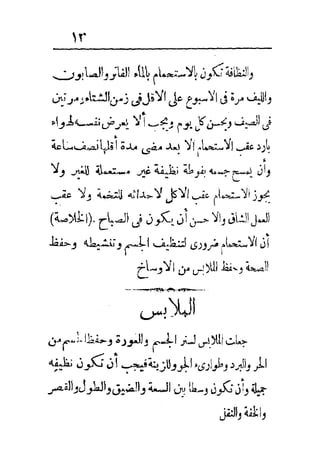 ١٣
والنظافة تكون بالاستحمام بالماء الفاتر والصابون
والليف مرة فى الاسبوع على الاقل فى زمن الشتاء ومرتين
فى الصيف ويحسن كل يوم ويجب ألا يعرض نفسه لهواء
بارد عقب الاستحمام الا بعد مضى مدة أقلها نصف ساعة
وأن يمسح جسمه بفوطة نظيفة غير مستعملة للغير ولا
يجوز الاستحمام عقب الاكل لاحداثه للتخمة ولا عقب
العمل الشاق والاحسن أن يكون فى الصباح .(الخلاصة)
أن الاستحمام ضرورى لتنظيف الجسم وتنشيطه وحفظ
الصحة وحفظ الملابس من الاوساخ
الملابس
جعلت الملابس لستر الجسم والعورة وحفظ الجسم من
الحر والبرد وطوارىء الجو وللزينة فيجب أن تكون نظيفه
جميلة وأن تكون وسطا بين السعة والضيق والطول والقصر
والخفة والثقل